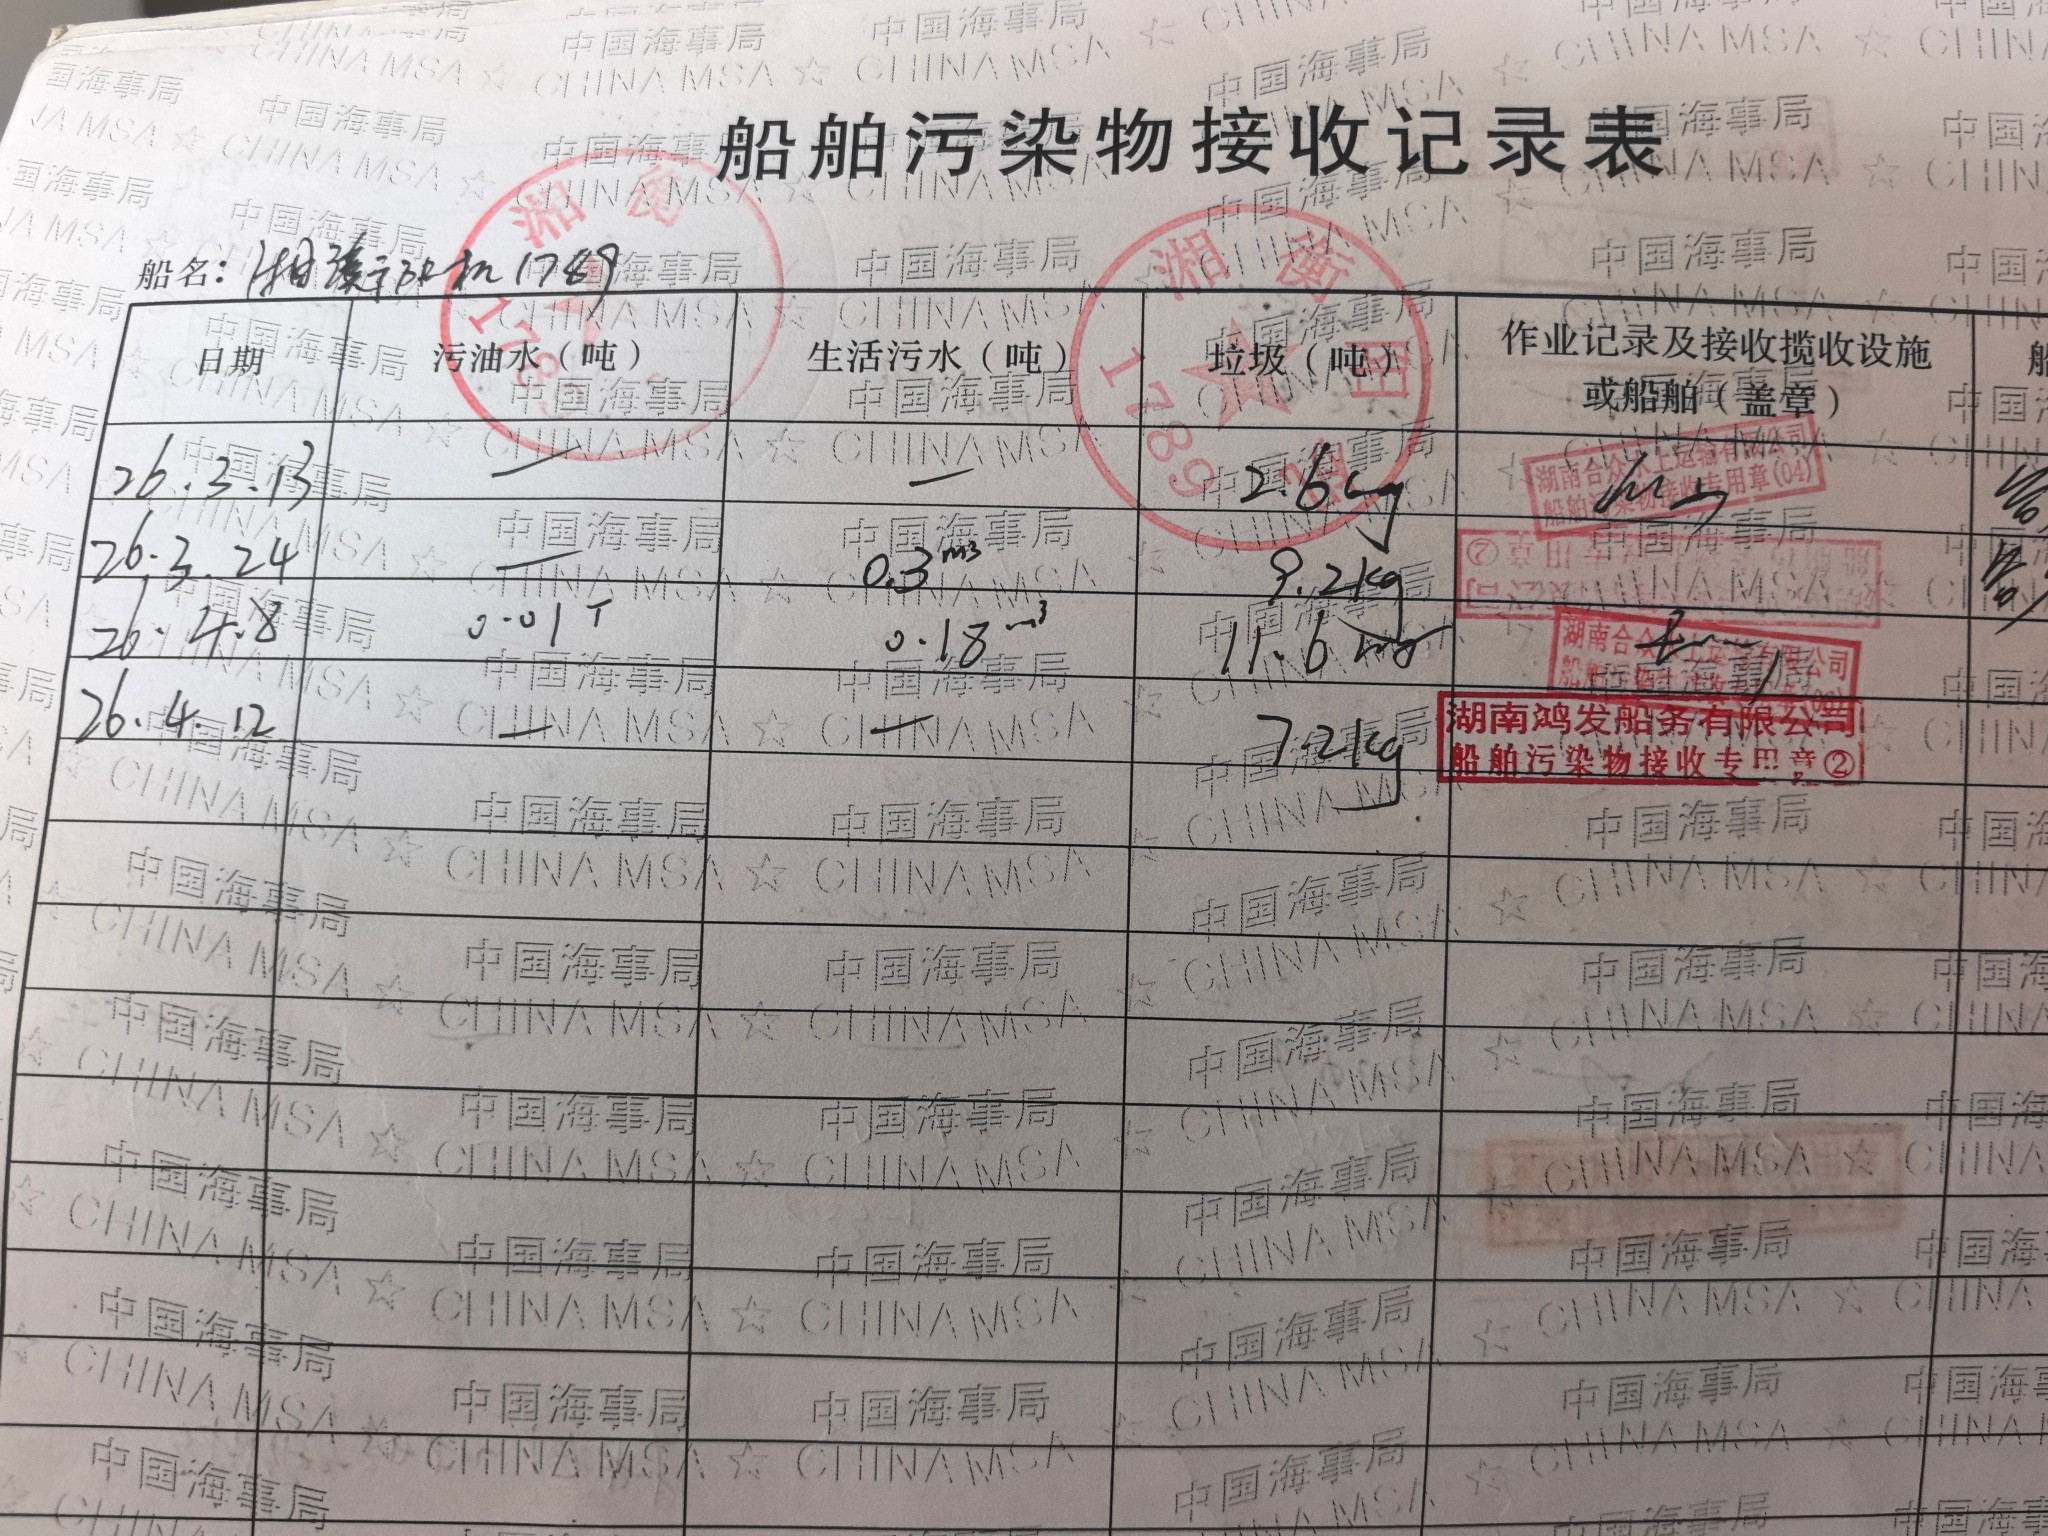 船舶污染物接收记录表
船名：湘衡阳机1789
日期 污油水（吨） 生活污水（吨） 垃圾（吨） 作业记录及接收揽收设施或船舶（盖章） 船
26.3.13 — — 2.6kg
湖南合众水上运输有限公司
船舶污染物接收专用章(04)
26.3.24 — 0.3m³ 9.2kg
26.4.8 0.01T 0.18m³ 11.6kg
湖南合众水上运输有限公司
26.4.12 — — 7.2kg
湖南鸿发船务有限公司
船舶污染物接收专用章②
湘衡
1789
湘衡阳机
1789
中国海事局
CHINA MSA